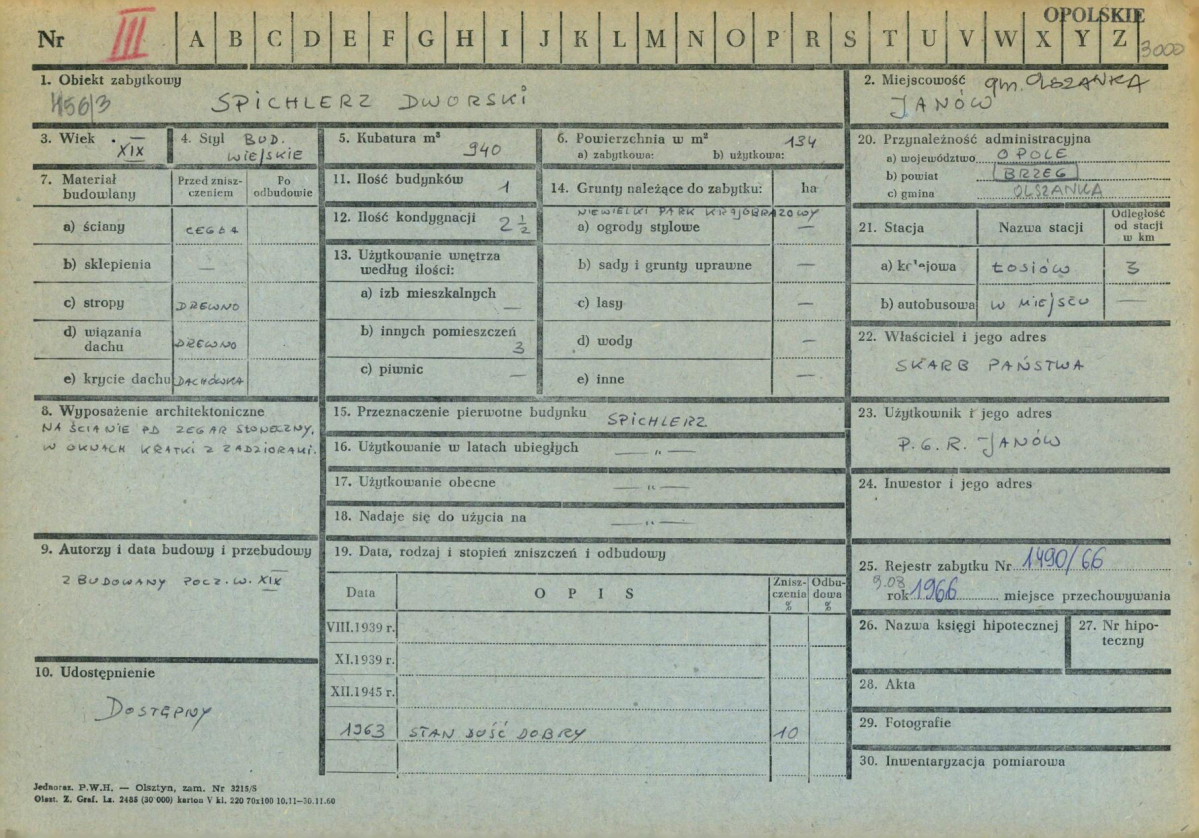 OPOLSKIE
Nr III A B C D E F G H I J K L M N O P R S T U V W X Y Z 3000
1. Obiekt zabytkowy
456/3 SPICHLERZ DWORSKI
2. Miejscowość gm. OLSZANKA
JANÓW
3. Wiek XIX
4. Styl BUD. WIEJSKIE
5. Kubatura m³ 940
6. Powierzchnia w m² 134
a) zabytkowa: b) użytkowa:
7. Materiał budowlany
Przed zniszczeniem
Po odbudowie
a) ściany CEGŁA
b) sklepienia —
c) stropy DREWNO
d) wiązania dachu DREWNO
e) krycie dachu DACHÓWKA
8. Wyposażenie architektoniczne
NA ŚCIANIE PD ZEGAR SŁONECZNY,
W OKNACH KRATKI Z ZADZIORAMI.
9. Autorzy i data budowy i przebudowy
ZBUDOWANY POCZ. W. XIX
10. Udostępnienie
DOSTĘPNY
11. Ilość budynków 1
12. Ilość kondygnacji 2 ½
13. Użytkowanie wnętrza
według ilości:
a) izb mieszkalnych —
b) innych pomieszczeń 3
c) piwnic —
14. Grunty należące do zabytku: ha
NIEWIELKI PARK KRAJOBRAZOWY
a) ogrody stylowe —
b) sady i grunty uprawne —
c) lasy —
d) wody —
e) inne —
15. Przeznaczenie pierwotne budynku SPICHLERZ
16. Użytkowanie w latach ubiegłych —„—
17. Użytkowanie obecne —„—
18. Nadaje się do użycia na —„—
19. Data, rodzaj i stopień zniszczeń i odbudowy
Data OPIS Zniszczenia % Odbudowa %
VIII.1939 r.
XI.1939 r.
XII.1945 r.
1963 STAN DOŚĆ DOBRY 10
20. Przynależność administracyjna
a) województwo OPOLE
b) powiat BRZEG
c) gmina OLSZANKA
21. Stacja Nazwa stacji Odległość od stacji w km
a) kolejowa ŁOSIÓW 3
b) autobusowa W MIEJSCU —
22. Właściciel i jego adres
SKARB PAŃSTWA
23. Użytkownik i jego adres
P.G.R. JANÓW
24. Inwestor i jego adres
25. Rejestr zabytku Nr 1490/66
9.08 rok 1966 miejsce przechowywania
26. Nazwa księgi hipotecznej
27. Nr hipoteczny
28. Akta
29. Fotografie
30. Inwentaryzacja pomiarowa
Jednoraz. P.W.H. — Olsztyn, zam. Nr 3215/S
Olszt. Z. Graf. Lz. 2485 (30 000) karton V kl. 220 70x100 10.11—30.11.60